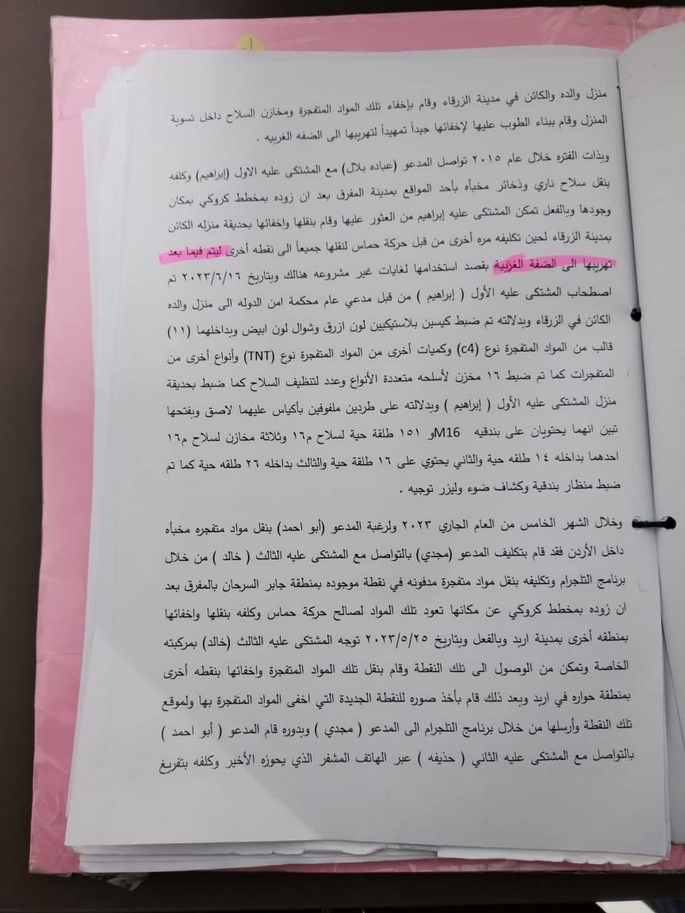 منزل والده والكائن في مدينة الزرقاء وقام بإخفاء تلك المواد المتفجرة ومخازن السلاح داخل تسوية
المنزل وقام ببناء الطوب عليها لإخفائها جيداً تمهيداً لتهريبها الى الضفه الغربيه .
وبذات الفتره خلال عام ٢٠١٥ تواصل المدعو (عباده بلال) مع المشتكى عليه الاول (إبراهيم) وكلفه
بنقل سلاح ناري وذخائر مخبأه بأحد المواقع بمدينة المفرق بعد ان زوده بمخطط كروكي بمكان
وجودها وبالفعل تمكن المشتكى عليه إبراهيم من العثور عليها وقام بنقلها واخفائها بحديقة منزله الكائن
بمدينة الزرقاء لحين تكليفه مره أخرى من قبل حركة حماس لنقلها جميعاً الى نقطه أخرى ليتم فيما بعد
تهريبها الى الضفة الغربية بقصد استخدامها لغايات غير مشروعه هنالك وبتاريخ ٢٠٢٣/٦/١٦ تم
اصطحاب المشتكى عليه الأول ( إبراهيم ) من قبل مدعي عام محكمة امن الدوله الى منزل والده
الكائن في الزرقاء وبدلالته تم ضبط كيسين بلاستيكيين لون ازرق وشوال لون ابيض وبداخلهما (١١)
قالب من المواد المتفجرة نوع (c4) وكميات أخرى من المواد المتفجرة نوع (TNT) وأنواع أخرى من
المتفجرات كما تم ضبط ١٦ مخزن لأسلحه متعددة الأنواع وعدد لتنظيف السلاح كما ضبط بحديقة
منزل المشتكى عليه الأول ( إبراهيم ) وبدلالته على طردين ملفوفين بأكياس عليهما لاصق وبفتحها
تبين انهما يحتويان على بندقيه M16 و ١٥١ طلقة حية لسلاح م١٦ وثلاثة مخازن لسلاح م١٦
احدهما بداخله ١٤ طلقه حية والثاني يحتوي على ١٦ طلقة حية والثالث بداخله ٢٦ طلقه حية كما تم
ضبط منظار بندقية وكشاف ضوء وليزر توجيه .
وخلال الشهر الخامس من العام الجاري ٢٠٢٣ ولرغبة المدعو (أبو احمد) بنقل مواد متفجره مخبأه
داخل الأردن فقد قام بتكليف المدعو (مجدي) بالتواصل مع المشتكى عليه الثالث ( خالد ) من خلال
برنامج التلجرام وتكليفه بنقل مواد متفجرة مدفونه في نقطة موجوده بمنطقة جابر السرحان بالمفرق بعد
ان زوده بمخطط كروكي عن مكانها تعود تلك المواد لصالح حركة حماس وكلفه بنقلها واخفائها
بمنطقه أخرى بمدينة اربد وبالفعل وبتاريخ ٢٠٢٣/٥/٢٥ توجه المشتكى عليه الثالث (خالد) بمركبته
الخاصة وتمكن من الوصول الى تلك النقطة وقام بنقل تلك المواد المتفجرة واخفائها بنقطه أخرى
بمنطقة حواره في اربد وبعد ذلك قام بأخذ صوره للنقطة الجديدة التي اخفى المواد المتفجرة بها ولموقع
تلك النقطة وأرسلها من خلال برنامج التلجرام الى المدعو ( مجدي ) وبدوره قام المدعو ( أبو احمد )
بالتواصل مع المشتكى عليه الثاني ( حذيفه ) عبر الهاتف المشفر الذي يحوزه الأخير وكلفه بتفريغ